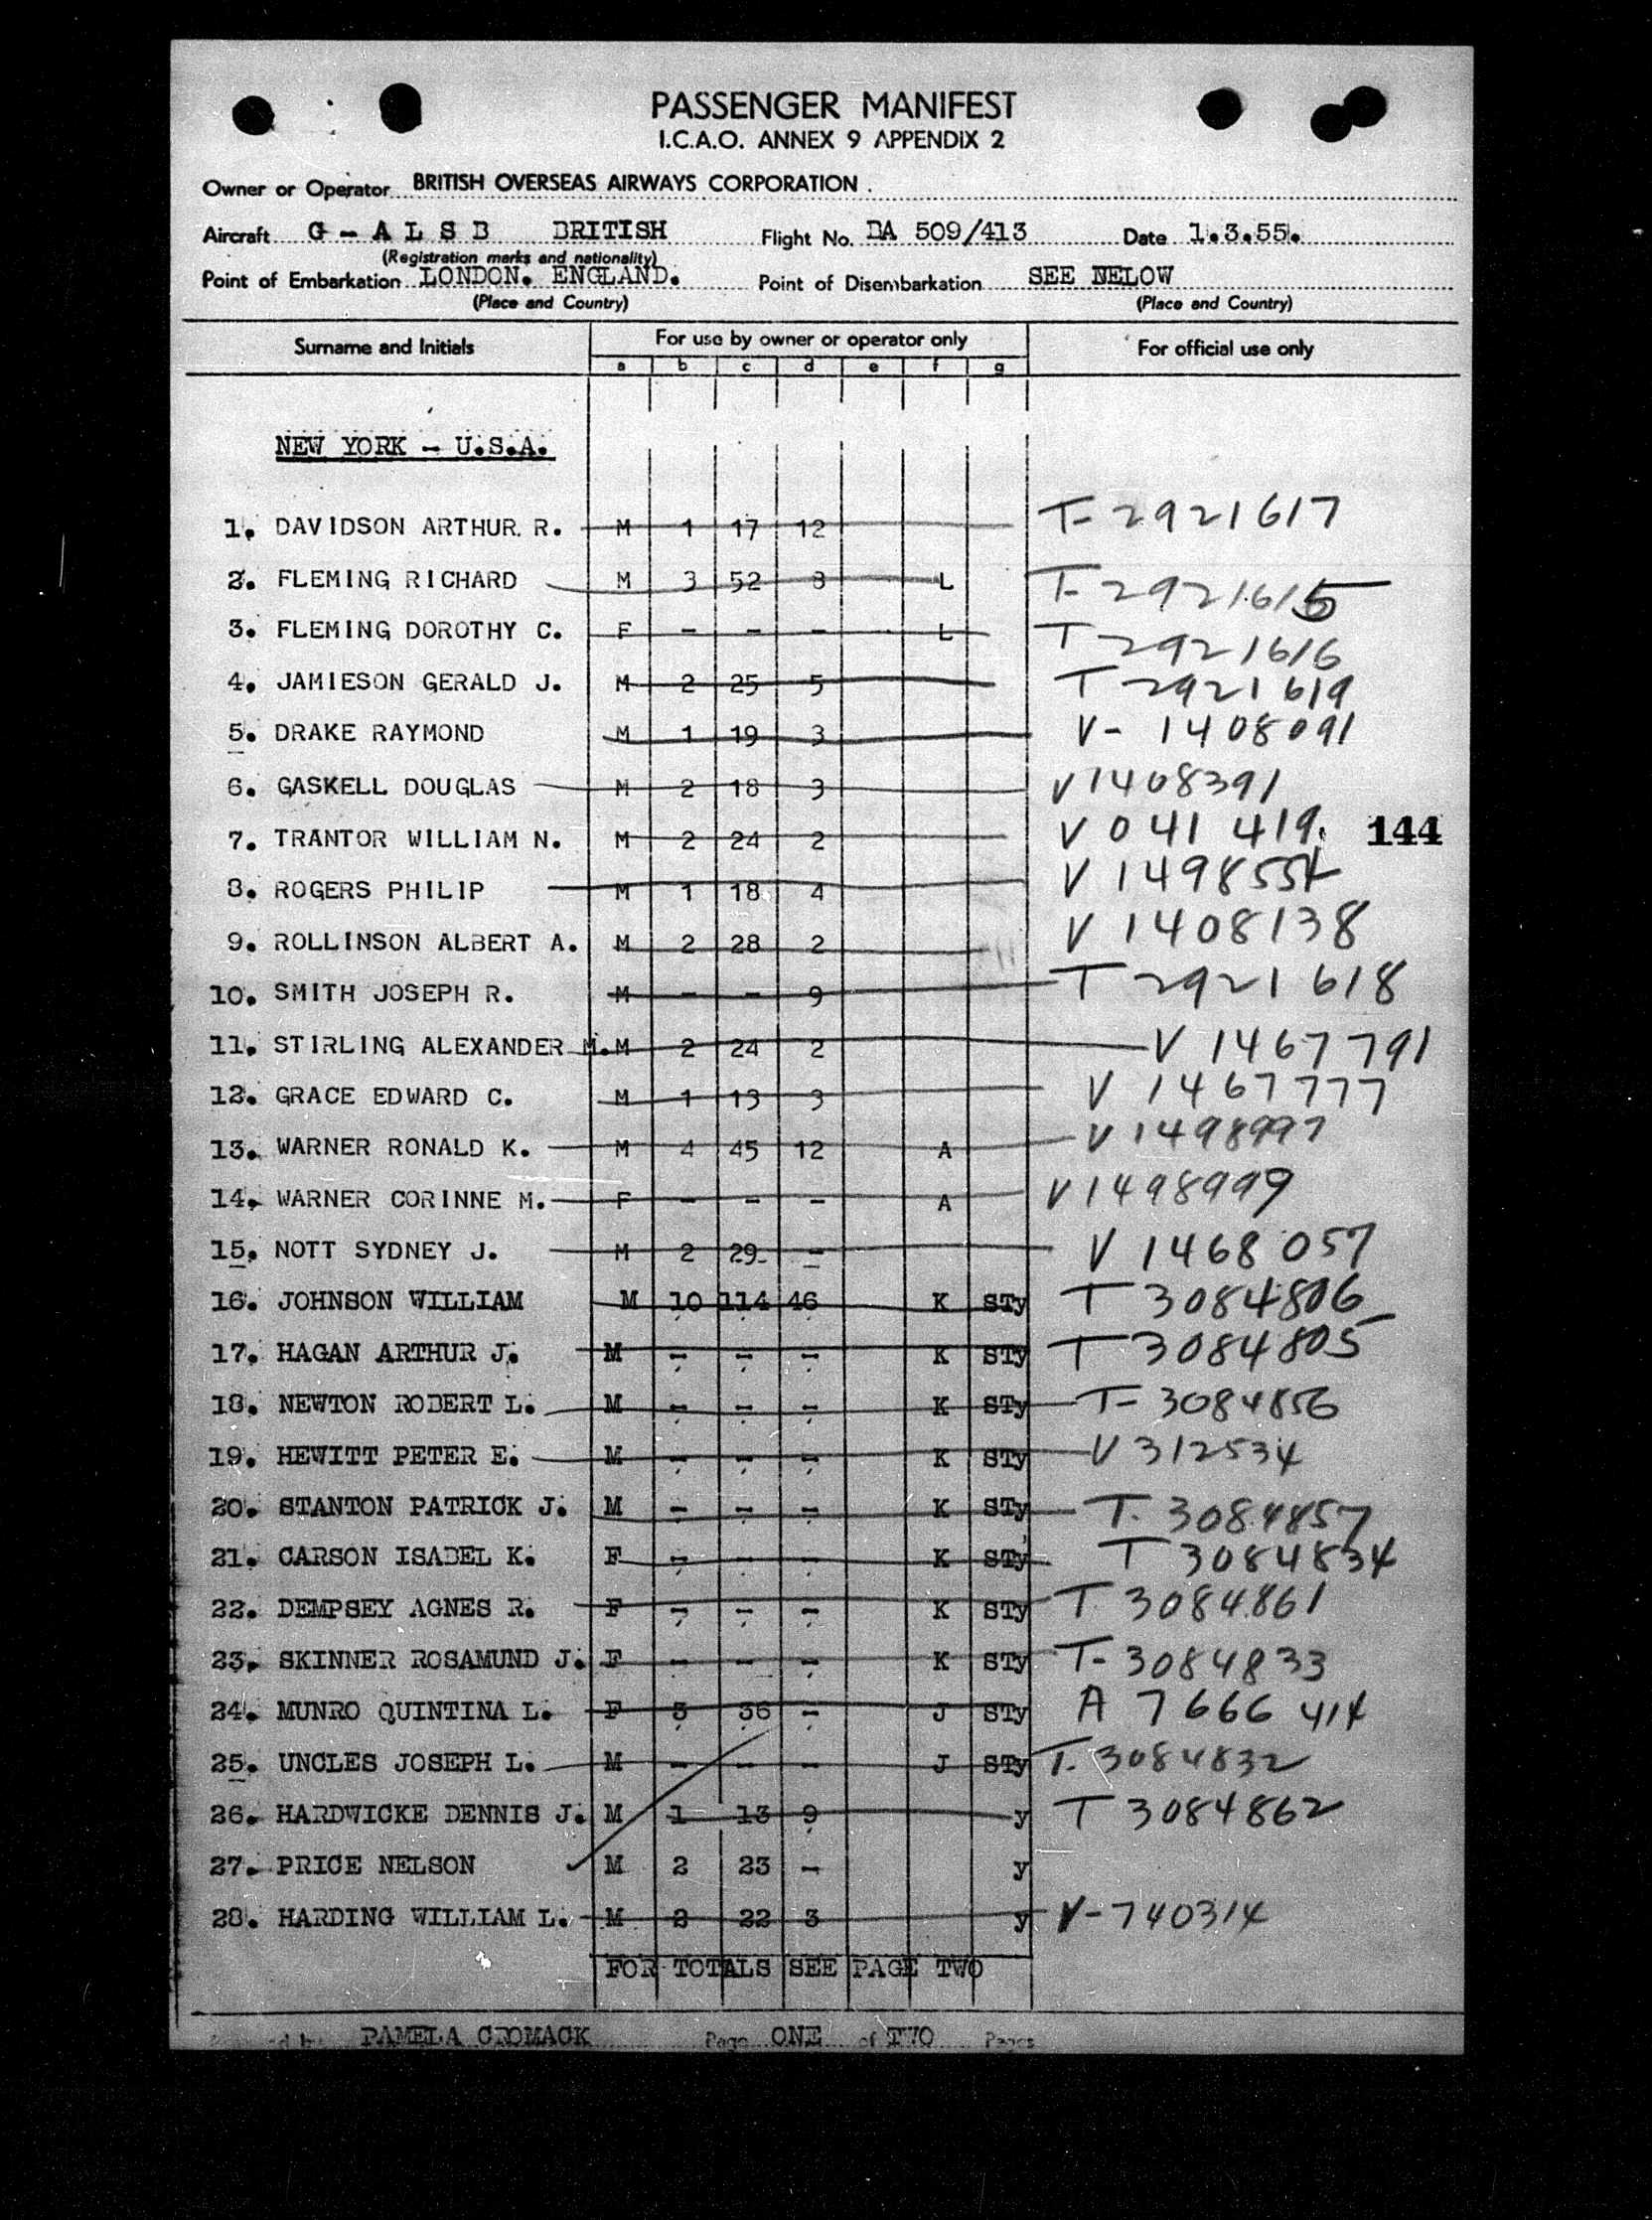 PASSENGER MANIFEST
I.C.A.O. ANNEX 9 APPENDIX 2
Owner or Operator BRITISH OVERSEAS AIRWAYS CORPORATION.
Aircraft G - A L S B BRITISH Flight No. BA 509/413 Date 1.3.55.
(Registration marks and nationality)
Point of Embarkation LONDON. ENGLAND. Point of Disembarkation SEE BELOW
(Place and Country) (Place and Country)
Surname and Initials For use by owner or operator only For official use only
a b c d e f g
NEW YORK - U.S.A.
1. DAVIDSON ARTHUR R. M 1 17 12 T-2921617
2. FLEMING RICHARD M 3 52 8 L T-2921615
3. FLEMING DOROTHY C. F - - - L T 2921616
4. JAMIESON GERALD J. M 2 25 5 T 2921619
5. DRAKE RAYMOND M 1 19 3 V-1408091
6. GASKELL DOUGLAS M 2 18 3 V1408391
7. TRANTOR WILLIAM N. M 2 24 2 V 041 419. 144
8. ROGERS PHILIP M 1 18 4 V 1498554
9. ROLLINSON ALBERT A. M 2 28 2 V 1408138
10. SMITH JOSEPH R. M - - 9 T 2921618
11. STIRLING ALEXANDER M. M 2 24 2 V 1467791
12. GRACE EDWARD C. M 1 13 3 V 1467777
13. WARNER RONALD K. M 4 45 12 A V 1498997
14. WARNER CORINNE M. F - - - A V1498999
15. NOTT SYDNEY J. M 2 29 - V 1468057
16. JOHNSON WILLIAM M 10 114 46 K STy T 3084806
17. HAGAN ARTHUR J. M - - - K STy T 3084805
18. NEWTON ROBERT L. M - - - K STy T-3084856
19. HEWITT PETER E. M - - - K STy V 312534
20. STANTON PATRICK J. M - - - K STy T. 3084857
21. CARSON ISABEL K. F - - - K STy T 3084834
22. DEMPSEY AGNES R. F - - - K STy T 3084861
23. SKINNER ROSAMUND J. F - - - K STy T-3084833
24. MUNRO QUINTINA L. F 3 36 - J STy A 7666 414
25. UNCLES JOSEPH L. M - - - J STy T. 3084832
26. HARDWICKE DENNIS J. M 1 13 9 y T 3084862
27. PRICE NELSON M 2 23 - y
28. HARDING WILLIAM L. M 2 22 3 y V-740314
FOR TOTALS SEE PAGE TWO
PAMELA CROMACK Page ONE of TWO Pages